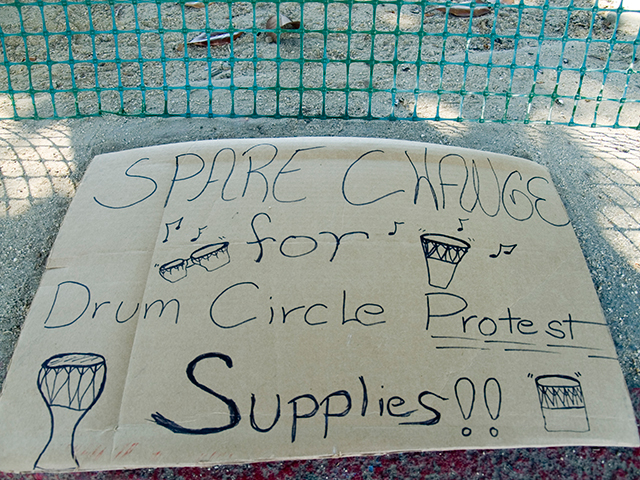 SPARE CHANGE
for
Drum Circle Protest
Supplies!!